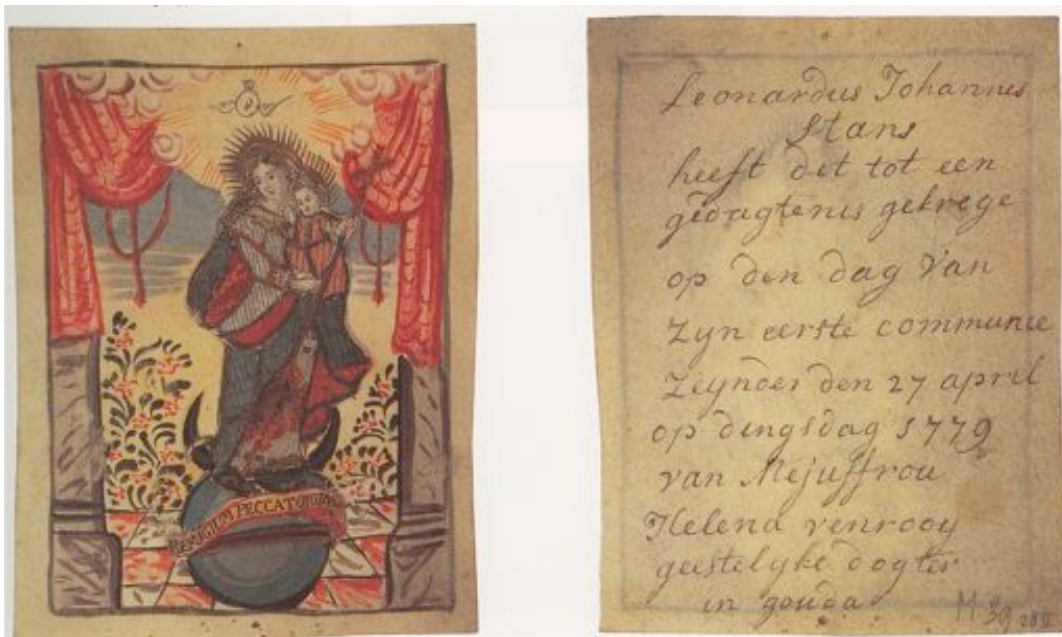 REFUGIUM PECCATORUM
Leonardus Johannes
Stans
heeft dit tot een
gedagtenis gekrege
op den dag van
zyn eerste communie
zeynder den 27 april
op dingsdag 1779
van Mejuffrou
Helena venrooy
geestelyke dogter
in gouda
M. 39